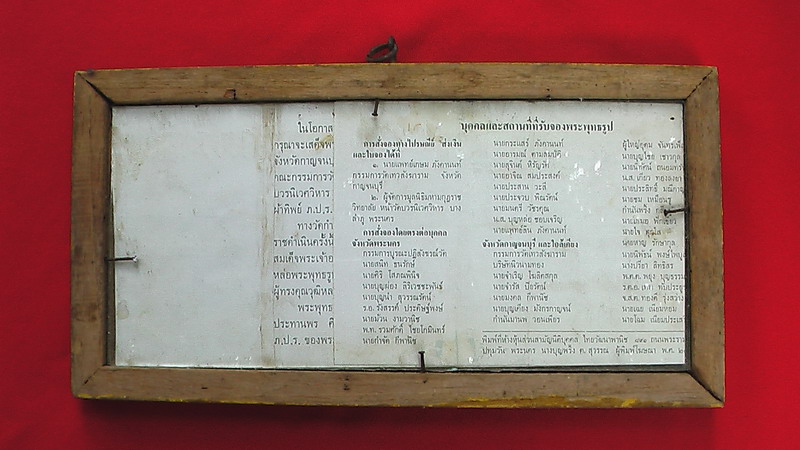 ในโอกาส
กรุณาจะเสด็จพ
จังหวัดกาญจนบุ
คณะกรรมการวั
บวรนิเวศวิหาร
ผ้าทิพย์ ภ.ป.ร.
ทางวัดกำ
ราชดำเนินครั้งนี้
สมเด็จพระเจ้าอ
หล่อพระพุทธรูป
ผู้ทรงคุณวุฒิหล
พระพุทธ
ประทานพร
ภ.ป.ร. ของพระ
บุคคลและสถานที่ที่รับจองพระพุทธรูป
การสั่งจองทางไปรษณีย์ ส่งเงิน
และใบจองได้ที่
๑. นายแพทย์เกษม ภังคานนท์
กรรมการวัดเทวสังฆาราม จังหวัด
กาญจนบุรี
๒. ผู้จัดการมูลนิธิมหามกุฏราช
วิทยาลัย หน้าวัดบวรนิเวศวิหาร บาง
ลำภู พระนคร
การสั่งจองโดยตรงต่อบุคคล
จังหวัดพระนคร
กรรมการบูรณะปฏิสังขรณ์วัด
นายสนิท ธนรักษ์
นายศิริ โสภณพินิจ
นายบุญผ่อง สิริเวชชะพันธ์
นายบุญนำ สุวรรณรัตน์
ร.อ. รังสรรค์ ประศิษฐ์พงษ์
นายม้วน งามวานิช
พ.ท. รวมศักดิ์ ไชยโกมินทร์
นายกำจัด กีพานิช
นายกระแสร์ ภังคานนท์
นายอารมณ์ คามสมบัติ
นายสุจินต์ หิรัญรัศ
นายอาจิณ สมประสงค์
นายประสาน วะสี
นายประจวบ พิณรัตน์
นายมนตรี วัชรคุณ
น.ส. บุญหล่อ ชอบเจริญ
นายแพทย์ลัน ภังคานนท์
จังหวัดกาญจนบุรี และใกล้เคียง
กรรมการวัดเทวสังฆาราม
บริษัทนิวนามทอง
นายจำเริญ โฆลิตสกุล
นายจำรัส ปิยรัตน์
นายมงคล กีพานิช
นายบุญเคียง มังกรกาญจน์
กำนันมานพ วอนเพียร
ผู้ใหญ่อุดม จันทร์เพ็
นายบุญไชย เชาวกุล
น.ส. เกียว ทองลงยา
นายประสิทธิ์ มณีกา
นายชม เหมือนชู
กำนันพริ้ง
นายใจ
นายหาญ รักษากุล
นายนิพันธ์ พงษ์ไพบู
นางปรียา ลิทธิสร
พ.ต.ต. พยุง บุญธรรม
ร.ต.อ. เภา ทับประยู
จ.ส.ต. ทองดี รุ่งสว่าง
นายเฉย เฉียบแหลม
นายโฉม เฉียบประเส
พิมพ์ที่ห้างหุ้นส่วนสามัญนิติบุคคล ไทยวัฒนาพานิช ๘๙๑ ถนนพระราม
ปทุมวัน พระนคร นางบุญพริ้ง ต. สุวรรณ ผู้พิมพ์โฆษณา พ.ศ. ๒